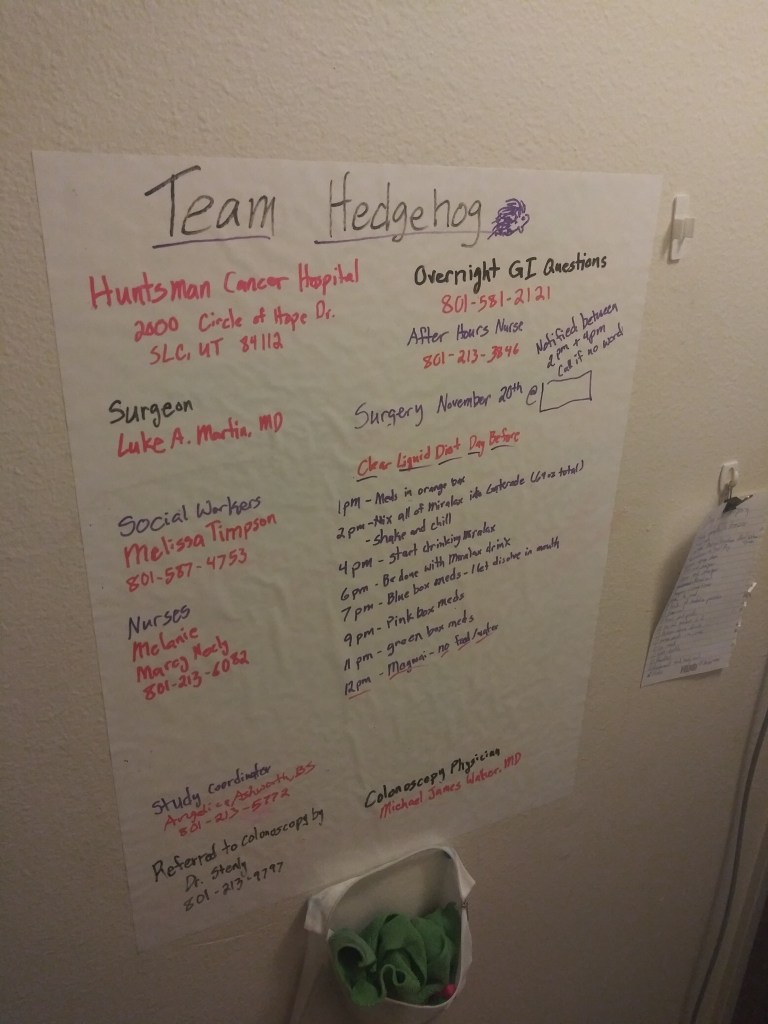 Team Hedgehog
Huntsman Cancer Hospital
2000 Circle of Hope Dr.
SLC, UT 84112
Surgeon
Luke A. Martin, MD
Social Workers
Melissa Timpson
801-587-4753
Nurses
Melanie
Marcy Neely
801-213-6082
Study Coordinator
Angelica Ashworth, BS
801-213-5772
Referred to colonoscopy by
Dr. Stenly
801-213-9797
Overnight GI Questions
801-581-2121
After Hours Nurse
801-213-3846
Notified between
2pm + 4pm
Call if no word
Surgery November 20th @
Clear Liquid Diet Day Before
1pm - Meds in orange box
2pm - Mix all of Miralax into Gatorade (64oz total)
- shake and chill
4pm - Start drinking Miralax
6pm - Be done with Miralax drink
7pm - Blue box meds - let dissolve in mouth
9pm - Pink box meds
11pm - green box meds
12pm - - no food/water
Colonoscopy Physician
Michael James Walker, MD